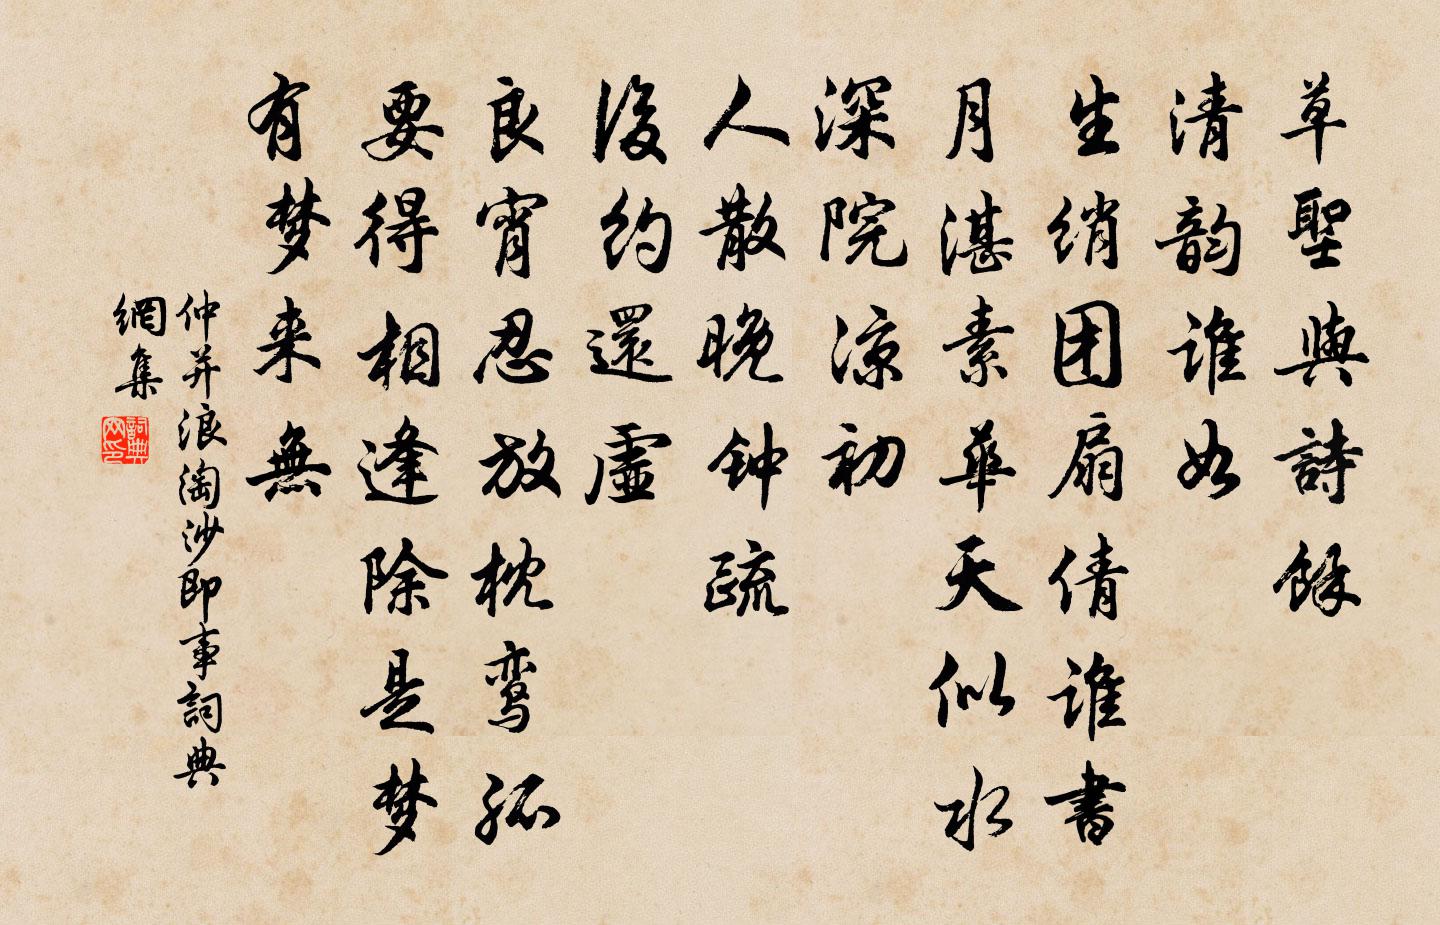 草聖與詩餘
清韵誰如
生绡团扇倩誰書
月湛素華天似水
深院涼初
人散晚钟疏
後約還虛
良宵忍放枕鸾孤
要得相逢除是梦
有梦来無
仲并浪淘沙即事詞典
網集
詞典网印